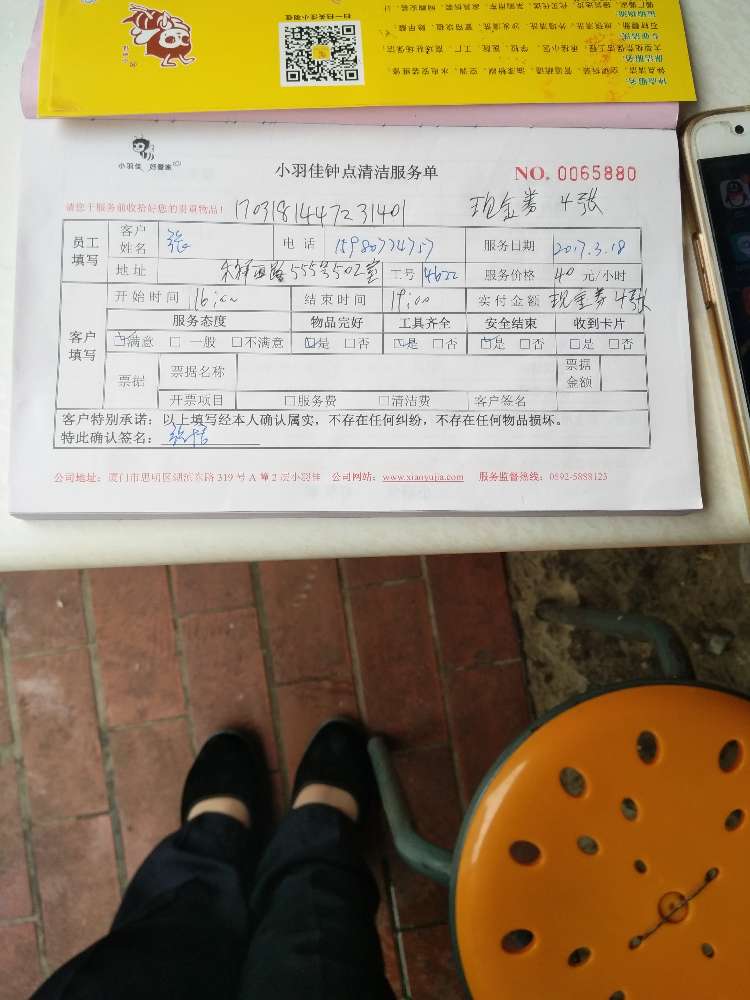 扫一扫关注小羽佳
钟点服务:
钟点清洁、空调拆装、管道疏通、油漆粉刷、空调、水电安装维修
保洁服务:
专业清洗:
运输物流:
小羽佳 好管家
小羽佳钟点清洁服务单
NO. 0065880
请您于服务前收拾好您的贵重物品! 1703181447231401 现金券 4张
员工填写
客户姓名 张 电话 15980774757 服务日期 2017.3.18
地址 禾祥西路555号502室 工号 4622 服务价格 40 元/小时
客户填写
开始时间 16:00 结束时间 19:00 实付金额 现金券4张
服务态度 物品完好 工具齐全 安全结束 收到卡片
☑满意 □ 一般 □不满意 ☑是 □否 ☑是 □否 ☑是 □否 □是 □否
票据 票据名称 票据金额
开票项目 □服务费 □清洁费 客户签名
客户特别承诺:以上填写经本人确认属实,不存在任何纠纷,不存在任何物品损坏。
特此确认签名:
公司地址:厦门市思明区湖滨东路 319 号 A 幢 2 层小羽佳 公司网站:www.xiaoyujia.com 服务监督热线:0592-5888123